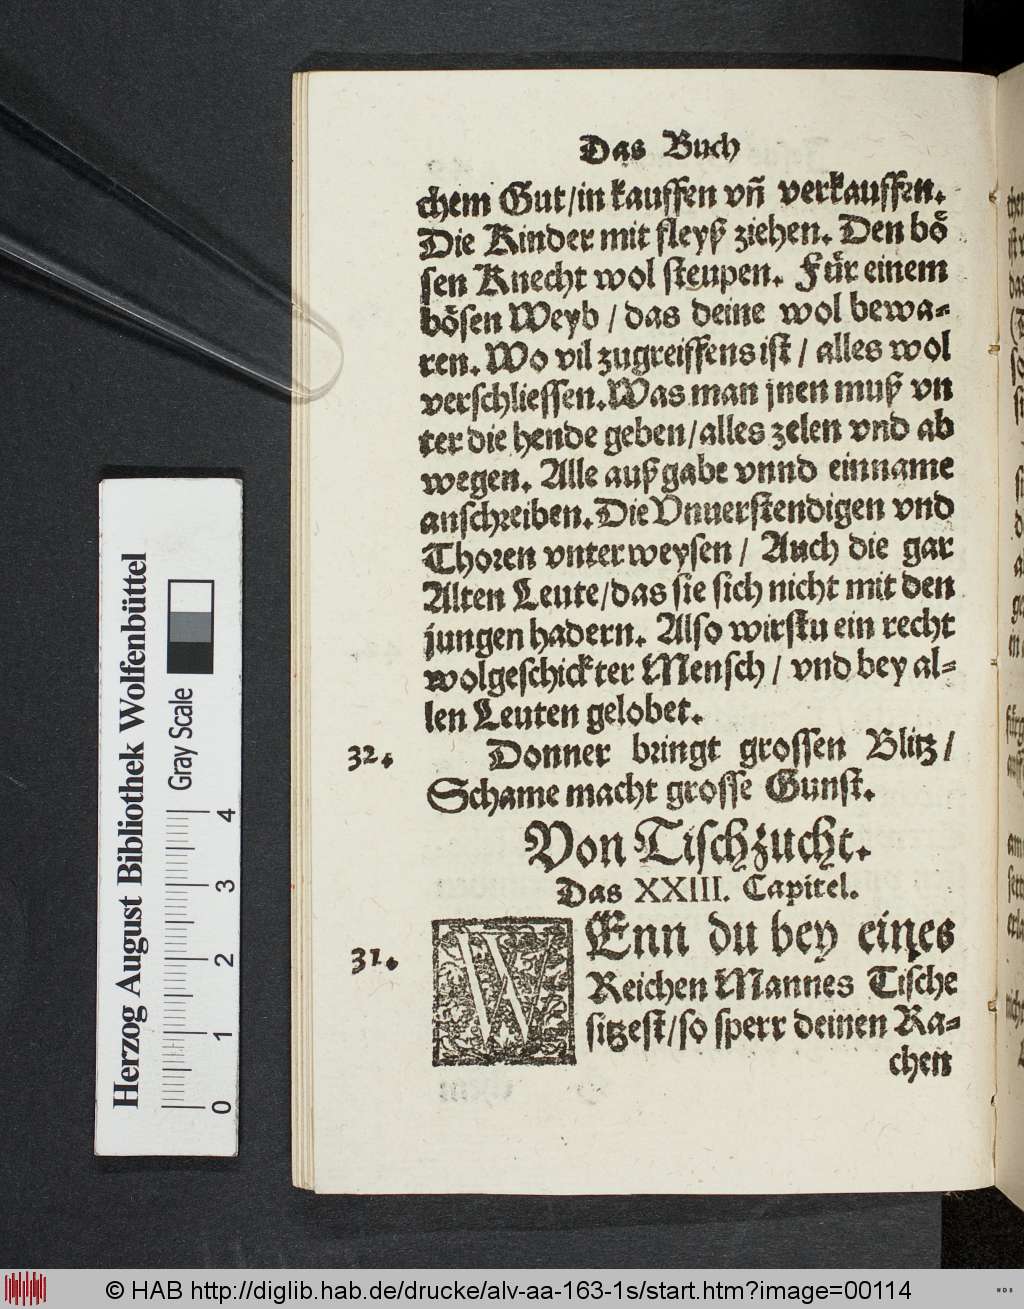 Das Buch
chem Gut/in kauffen vñ verkauffen.
Die Kinder mit fleyß ziehen. Den bö
sen Knecht wol steupen. Für einem
bösen Weyb / das deine wol bewa-
ren. Wo vil zugreiffens ist / alles wol
verschliessen. Was man jnen muß vn
ter die hende geben/alles zelen vnd ab
wegen. Alle außgabe vnnd einname
anschreiben. Die Vnuerstendigen vnd
Thoren vnterweysen / Auch die gar
Alten Leute/das sie sich nicht mit den
jungen hadern. Also wirstu ein recht
wolgeschickter Mensch / vnd bey al-
len Leuten gelobet.
32. Donner bringt grossen Blitz /
Schame macht grosse Gunst.
Von Tischzucht.
Das XXIII. Capitel.
31. WEnn du bey eines
Reichen Mannes Tische
sitzest/so sperr deinen Ra-
chen
Herzog August Bibliothek Wolfenbüttel
Gray Scale
0 1 2 3 4
© HAB http://diglib.hab.de/drucke/alv-aa-163-1s/start.htm?image=00114